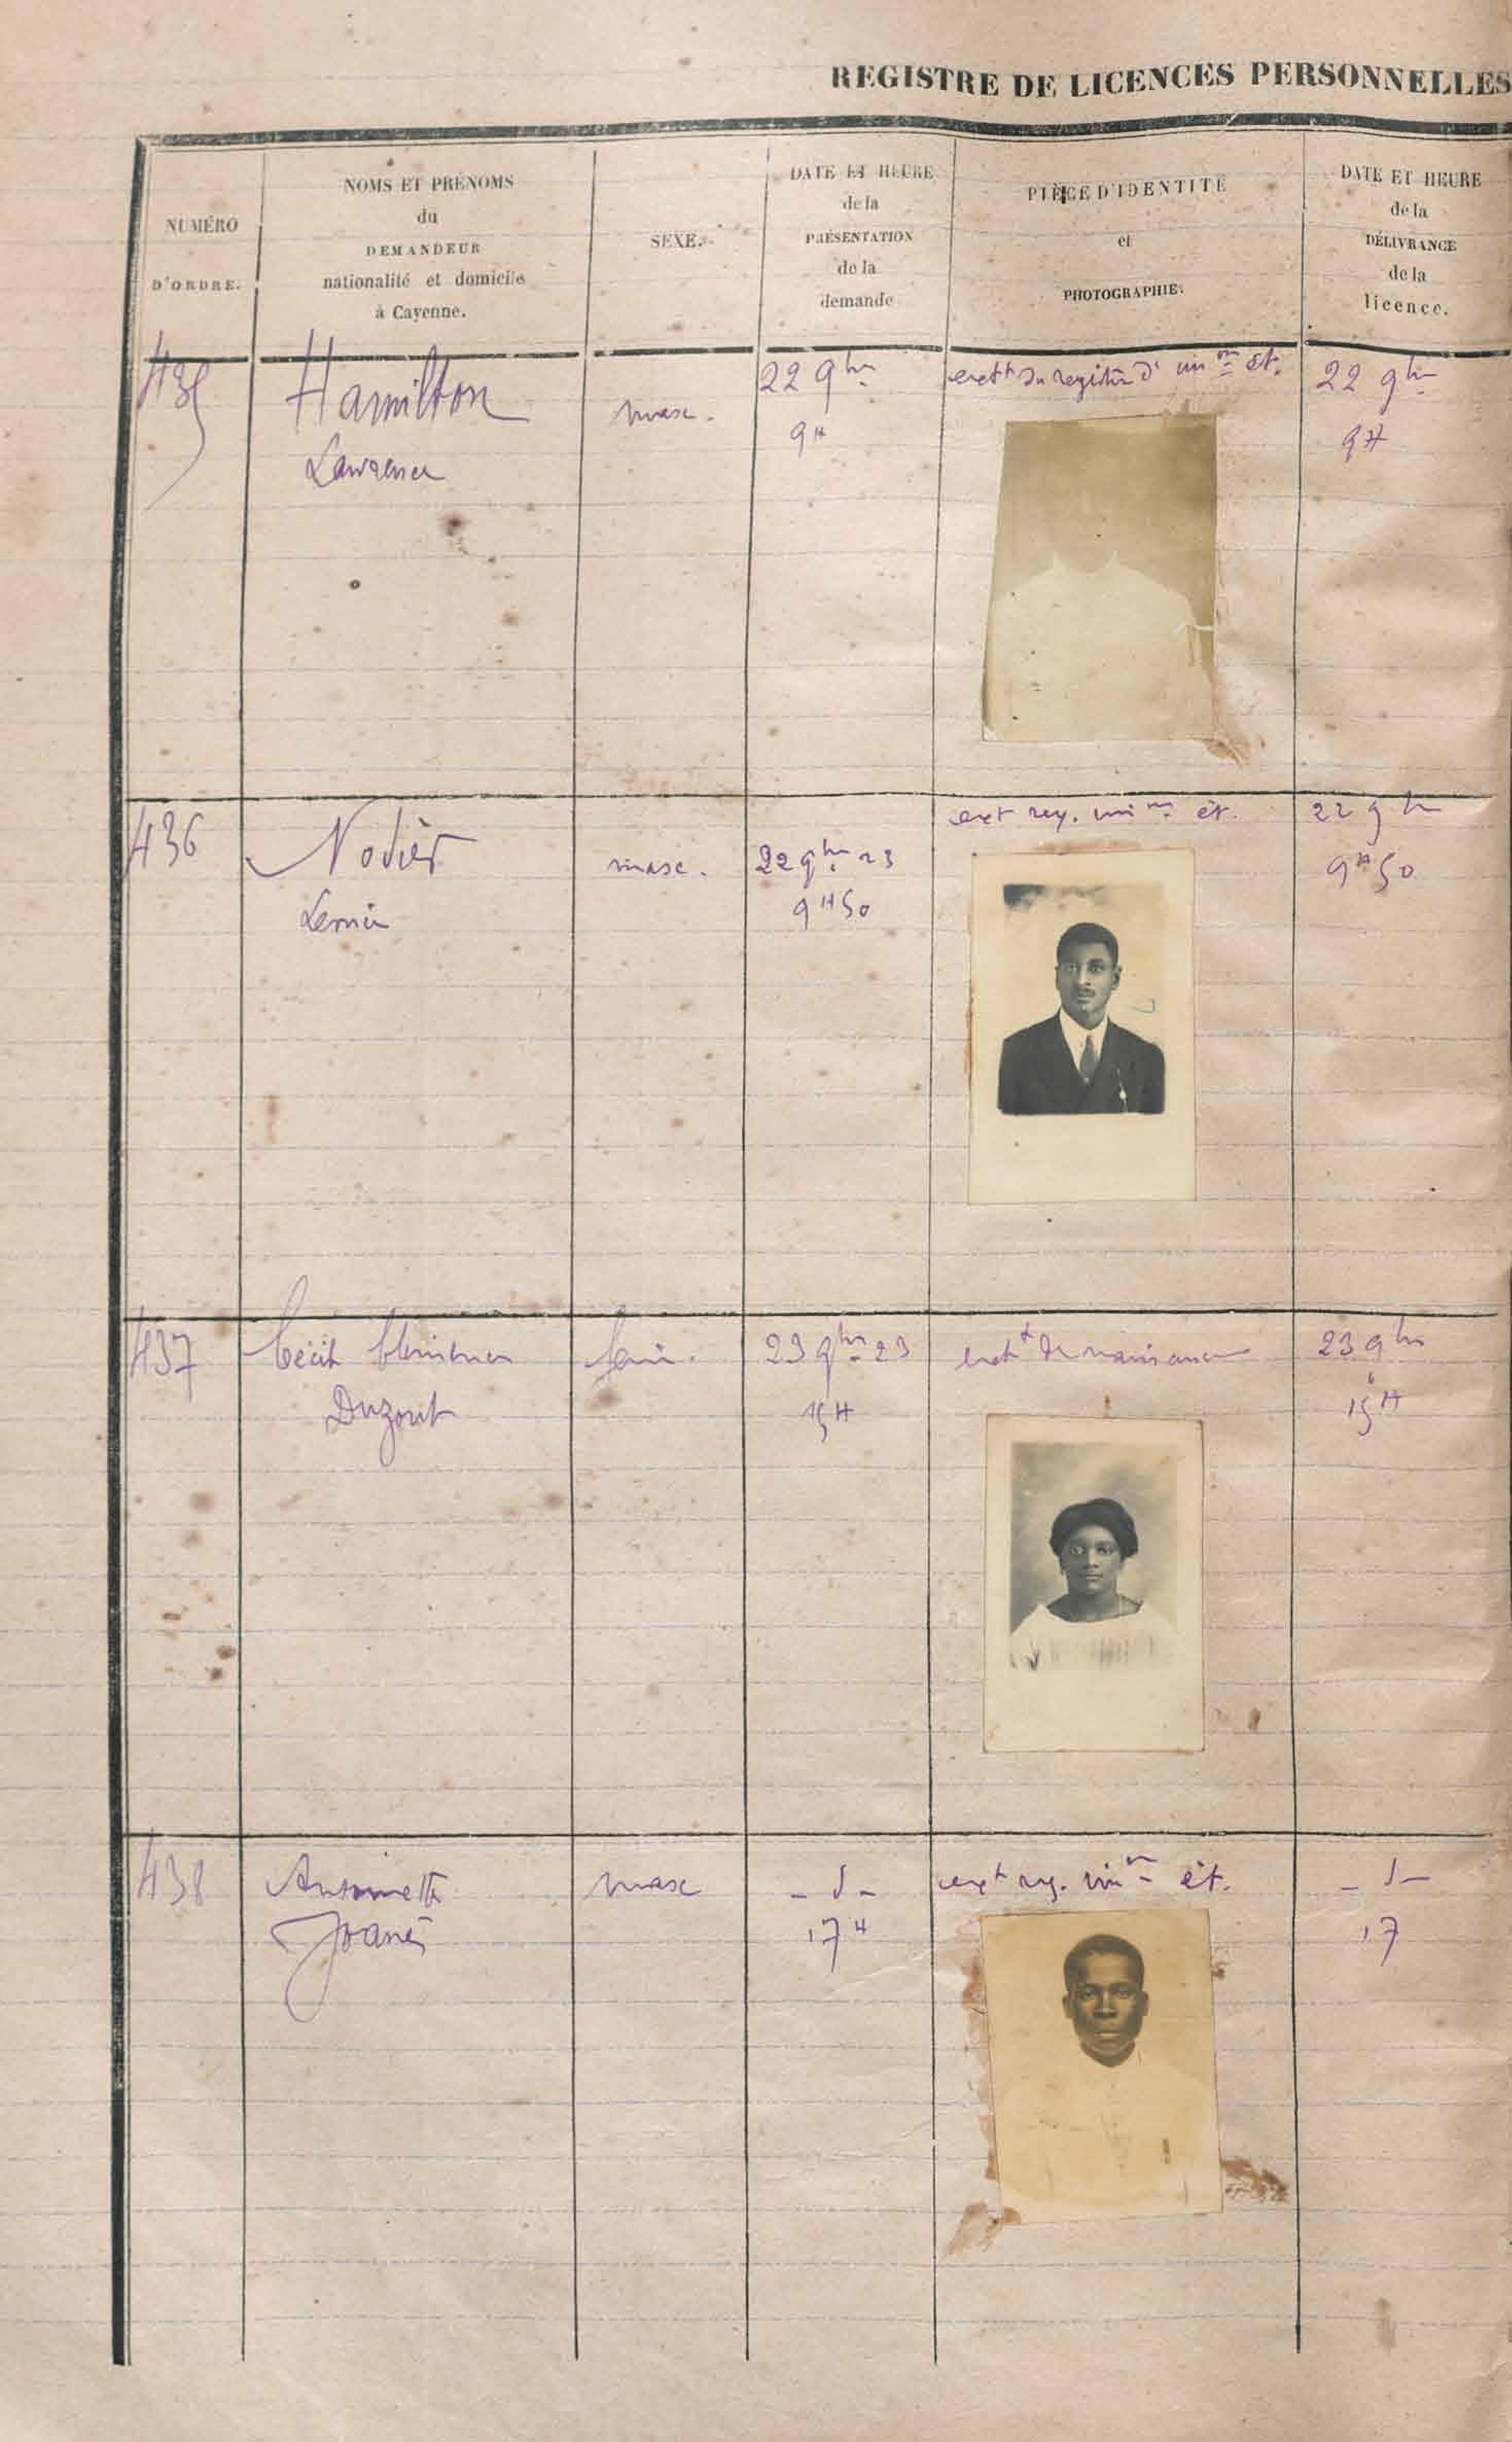 REGISTRE DE LICENCES PERSONNELLES
NUMÉRO
D'ORDRE.
NOMS ET PRÉNOMS
du
DEMANDEUR
nationalité et domicile
à Cayenne.
SEXE.
DATE ET HEURE
de la
PRÉSENTATION
de la
demande
PIÈCE D'IDENTITÉ
et
PHOTOGRAPHIE.
DATE ET HEURE
de la
DÉLIVRANCE
de la
licence.
435
Hamilton
Lawrence
masc.
22 9bre
9H
extt du registre d' imon ét.
22 9bre
9H
436
Nodier
masc.
22 9bre 23
9H50
ext reg. immon ét.
22 9bre
9H50
437
Duzont
fém.
23 9bre 23
15H
extt de naissance
23 9bre
15H
438
Antoinette
Joanès
masc
- d -
17H
ext reg. immon ét.
- d -
17